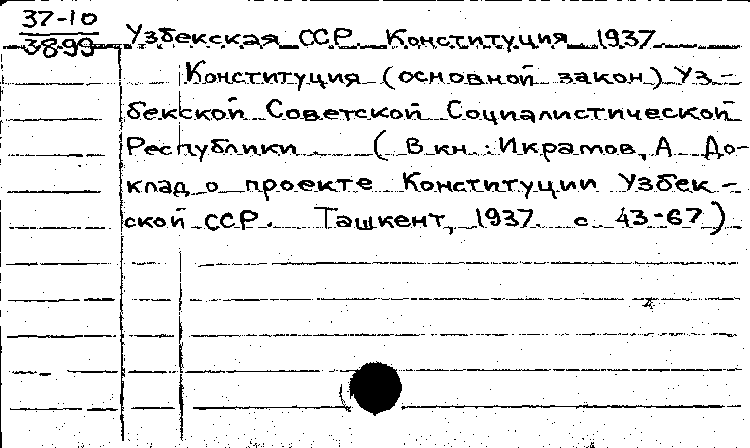 37-10
3899
Узбекская ССР. Конституция. 1937
Конституция (основной закон) Уз-
бекской Советской Социалистической
Республики. (В кн.: Икрамов, А. До-
клад о проекте Конституции Узбек-
ской ССР. Ташкент, 1937. с. 43-67)